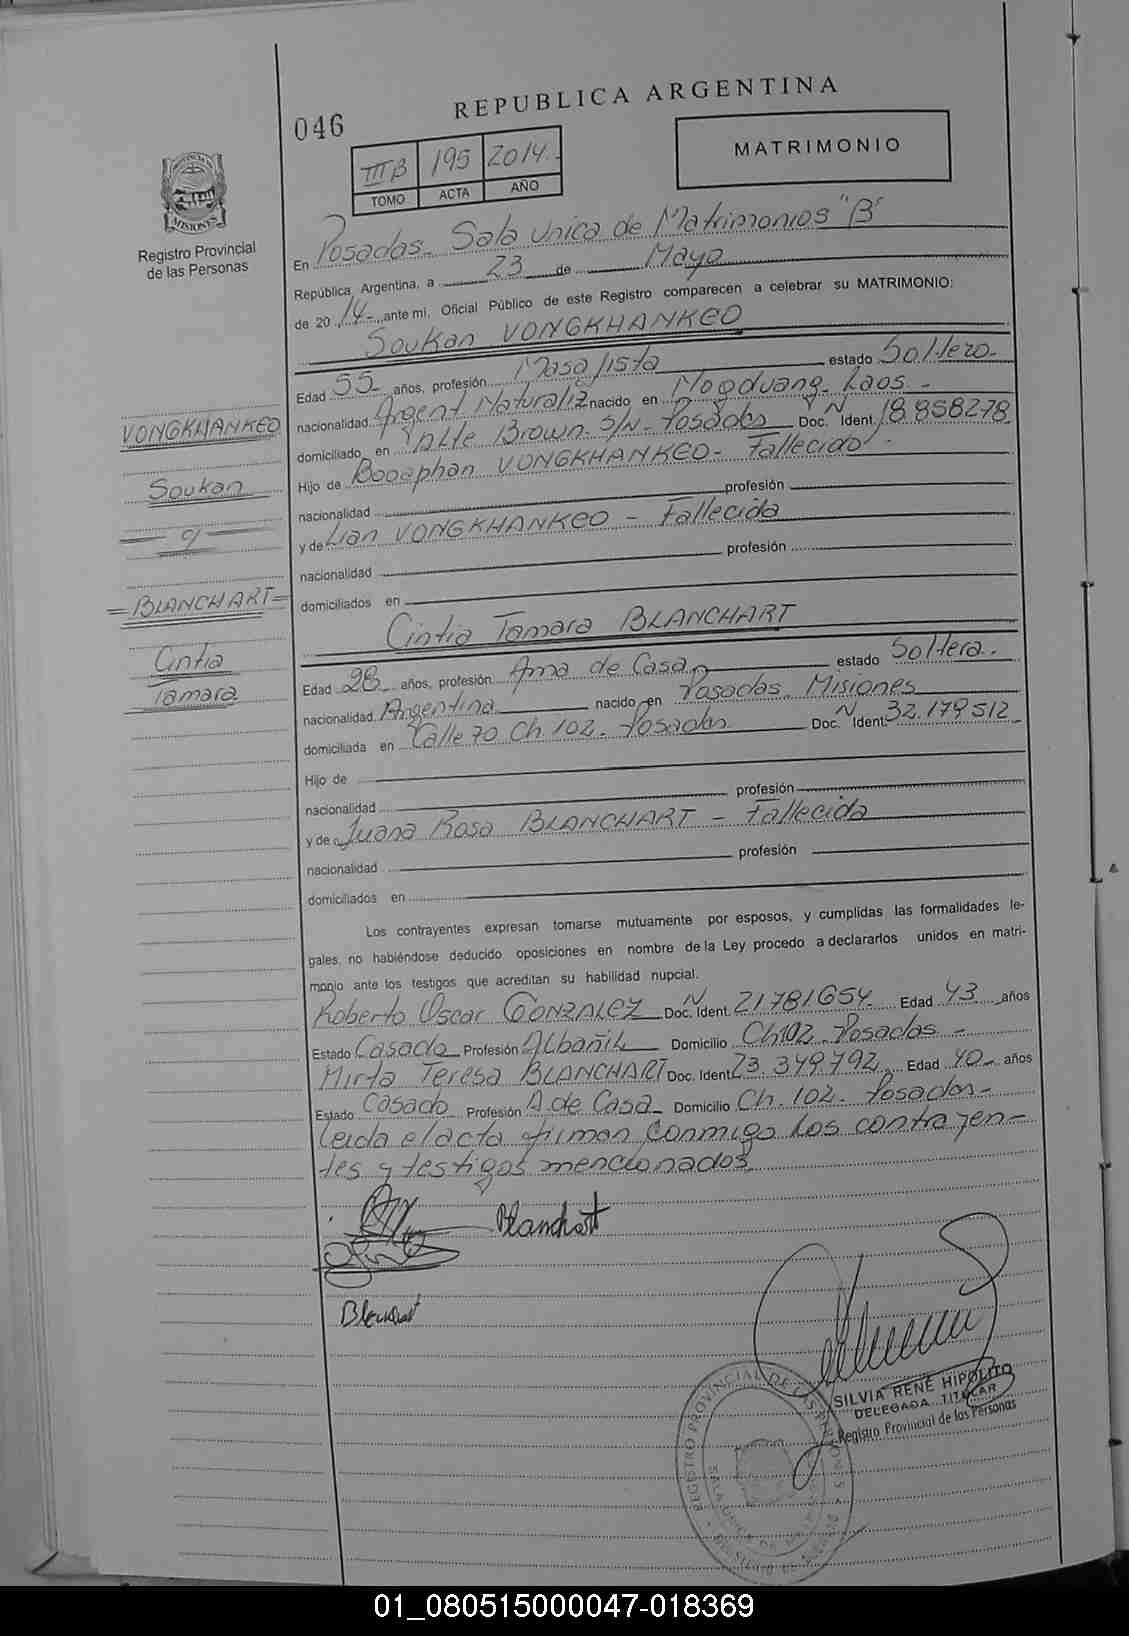 REPUBLICA ARGENTINA
046
MATRIMONIO
III B 195 2014.-
TOMO ACTA AÑO
PROVINCIA DE MISIONES
Registro Provincial
de las Personas
En Posadas. Sala Unica de Matrimonios "B"
República Argentina, a 23 de Mayo
de 20 14- ante mi, Oficial Público de este Registro comparecen a celebrar su MATRIMONIO:
Soukan VONGKHANKEO
Edad 55- años, profesión Masajista estado Soltero-
nacionalidad Argent Naturaliz nacido en Laos.-
domiciliado en Alte Brown. S/N- Posadas Doc. N Ident. 18.858278
Hijo de VONGKHANKEO- Fallecido-
nacionalidad profesión
y de Lian VONGKHANKEO - Fallecida
nacionalidad profesión
domiciliados en
VONGKHANKEO
Soukan
y
=BLANCHART=
Cintia
Tamara
Cintia Tamara BLANCHART
Edad 28 años, profesión Ama de Casa estado Soltera.
nacionalidad Argentina nacido en Posadas. Misiones
domiciliada en Calle 70 Ch. 102. Posadas Doc. N Ident. 32.179512
Hijo de
nacionalidad profesión
y de Juana Rosa BLANCHART - Fallecida
nacionalidad profesión
domiciliados en
Los contrayentes expresan tomarse mutuamente por esposos, y cumplidas las formalidades le-
gales, no habiéndose deducido oposiciones en nombre de la Ley procedo a declararlos unidos en matri-
monio ante los testigos que acreditan su habilidad nupcial.
Roberto Oscar GONZALEZ Doc. N Ident. 21781.654. Edad 43 años
Estado Casado Profesión Albañil Domicilio Ch102. Posadas-
Mirta Teresa BLANCHART Doc. Ident 23.349.792 Edad 40- años
Estado Casado Profesión A.de Casa- Domicilio Ch. 102. Posadas-
Leida el acta firman conmigo los contrayen-
tes y testigos mencionados
Blanchart
SILVIA RENÉ HIPOLITO
DELEGADA TITULAR
Registro Provincial de las Personas
REGISTRO PROVINCIAL DE LAS PERSONAS
01_080515000047-018369